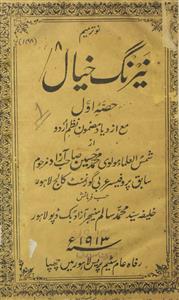 نیرنگ خیال
حصۂ اول
مع ازدیاد مضمون نظم اردو
از
شمس العلما مولوی محمد حسین صاحب آزاد مرحوم
سابق پروفیسر عربی گورنمنٹ کالج لاہور
حسب فرمائش
خلیفہ سید محمد سالم منیجر آزاد بک ڈپو لاہور
۱۹۱۳ء
رفاہ عام سٹیم پریس لاہور میں چھپا